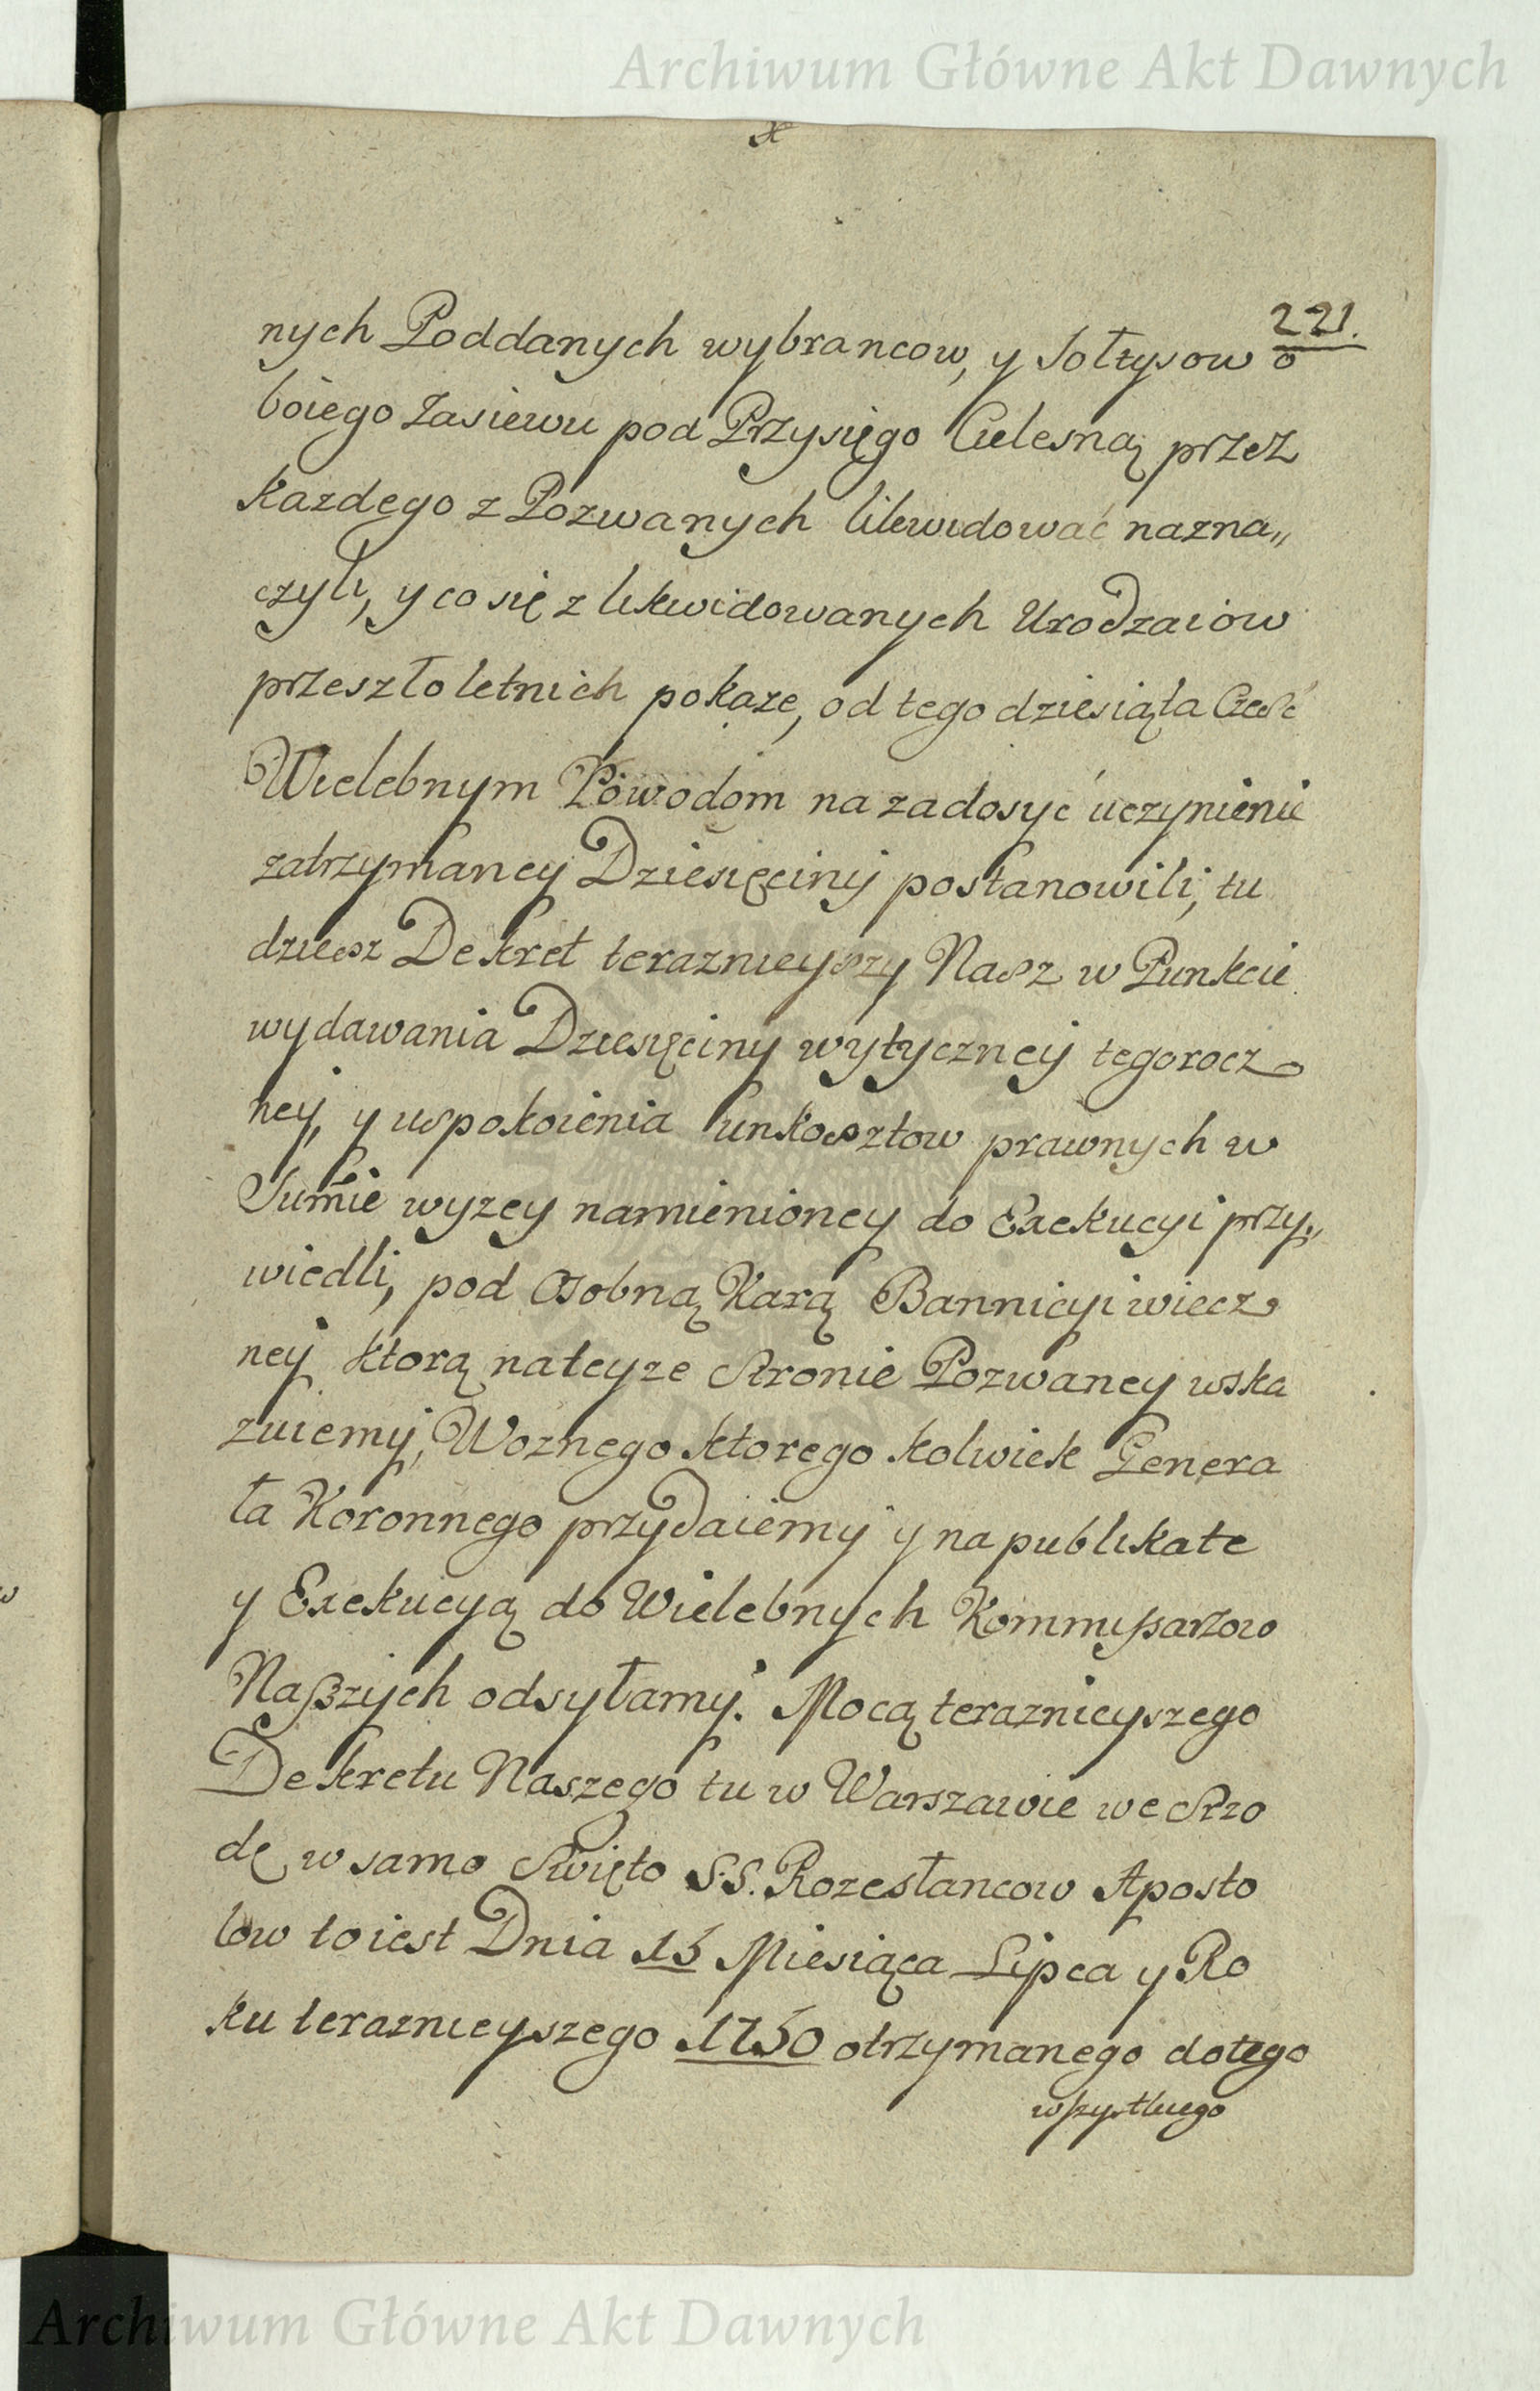 Archiwum Główne Akt Dawnych
x
221.
nych Poddanych wybrancow, y Sołtysow o
boiego Zasiewu pod Przysięgo Cielesną przez
kazdego z Pozwanych likwidować nazna„
czyli, y co się z likwidowanych Urodzaiow
przeszłoletnich pokaze, od tego dziesiąta Częsć
Wielebnym Powodom na zadosyć uczynienie
zatrzymaney Dziesięciny postanowili, tu
dziesz Dekret teraznieyszy Nasz w Punkcie
wydawania Dziesięciny wytyczney tegorocz
ney, y uspokoienia unkosztow prawnych w
Sum̃ie wyzey namienioney do Exekucyi przy„
wiedli, pod osobną Karą Bannicyi wiecz
ney ktorą nateyze Stronie Pozwaney wska
zuiemy, Woznego ktorego kolwiek Genera
ła Koronnego przydaiemy y na publikate
y Exekucyą do Wielebnych Kommyssarzow
Naszych odsyłamy. Mocą teraznieyszego
Dekretu Naszego tu w Warszawie we Srzo
dę w samo Swięto S.S. Rozesłancow Aposto
low toiest Dnia 15 Miesiąca Lipca y Ro
ku teraznieyszego 1750 otrzymanego dotego
wszystkiego
Archiwum Główne Akt Dawnych